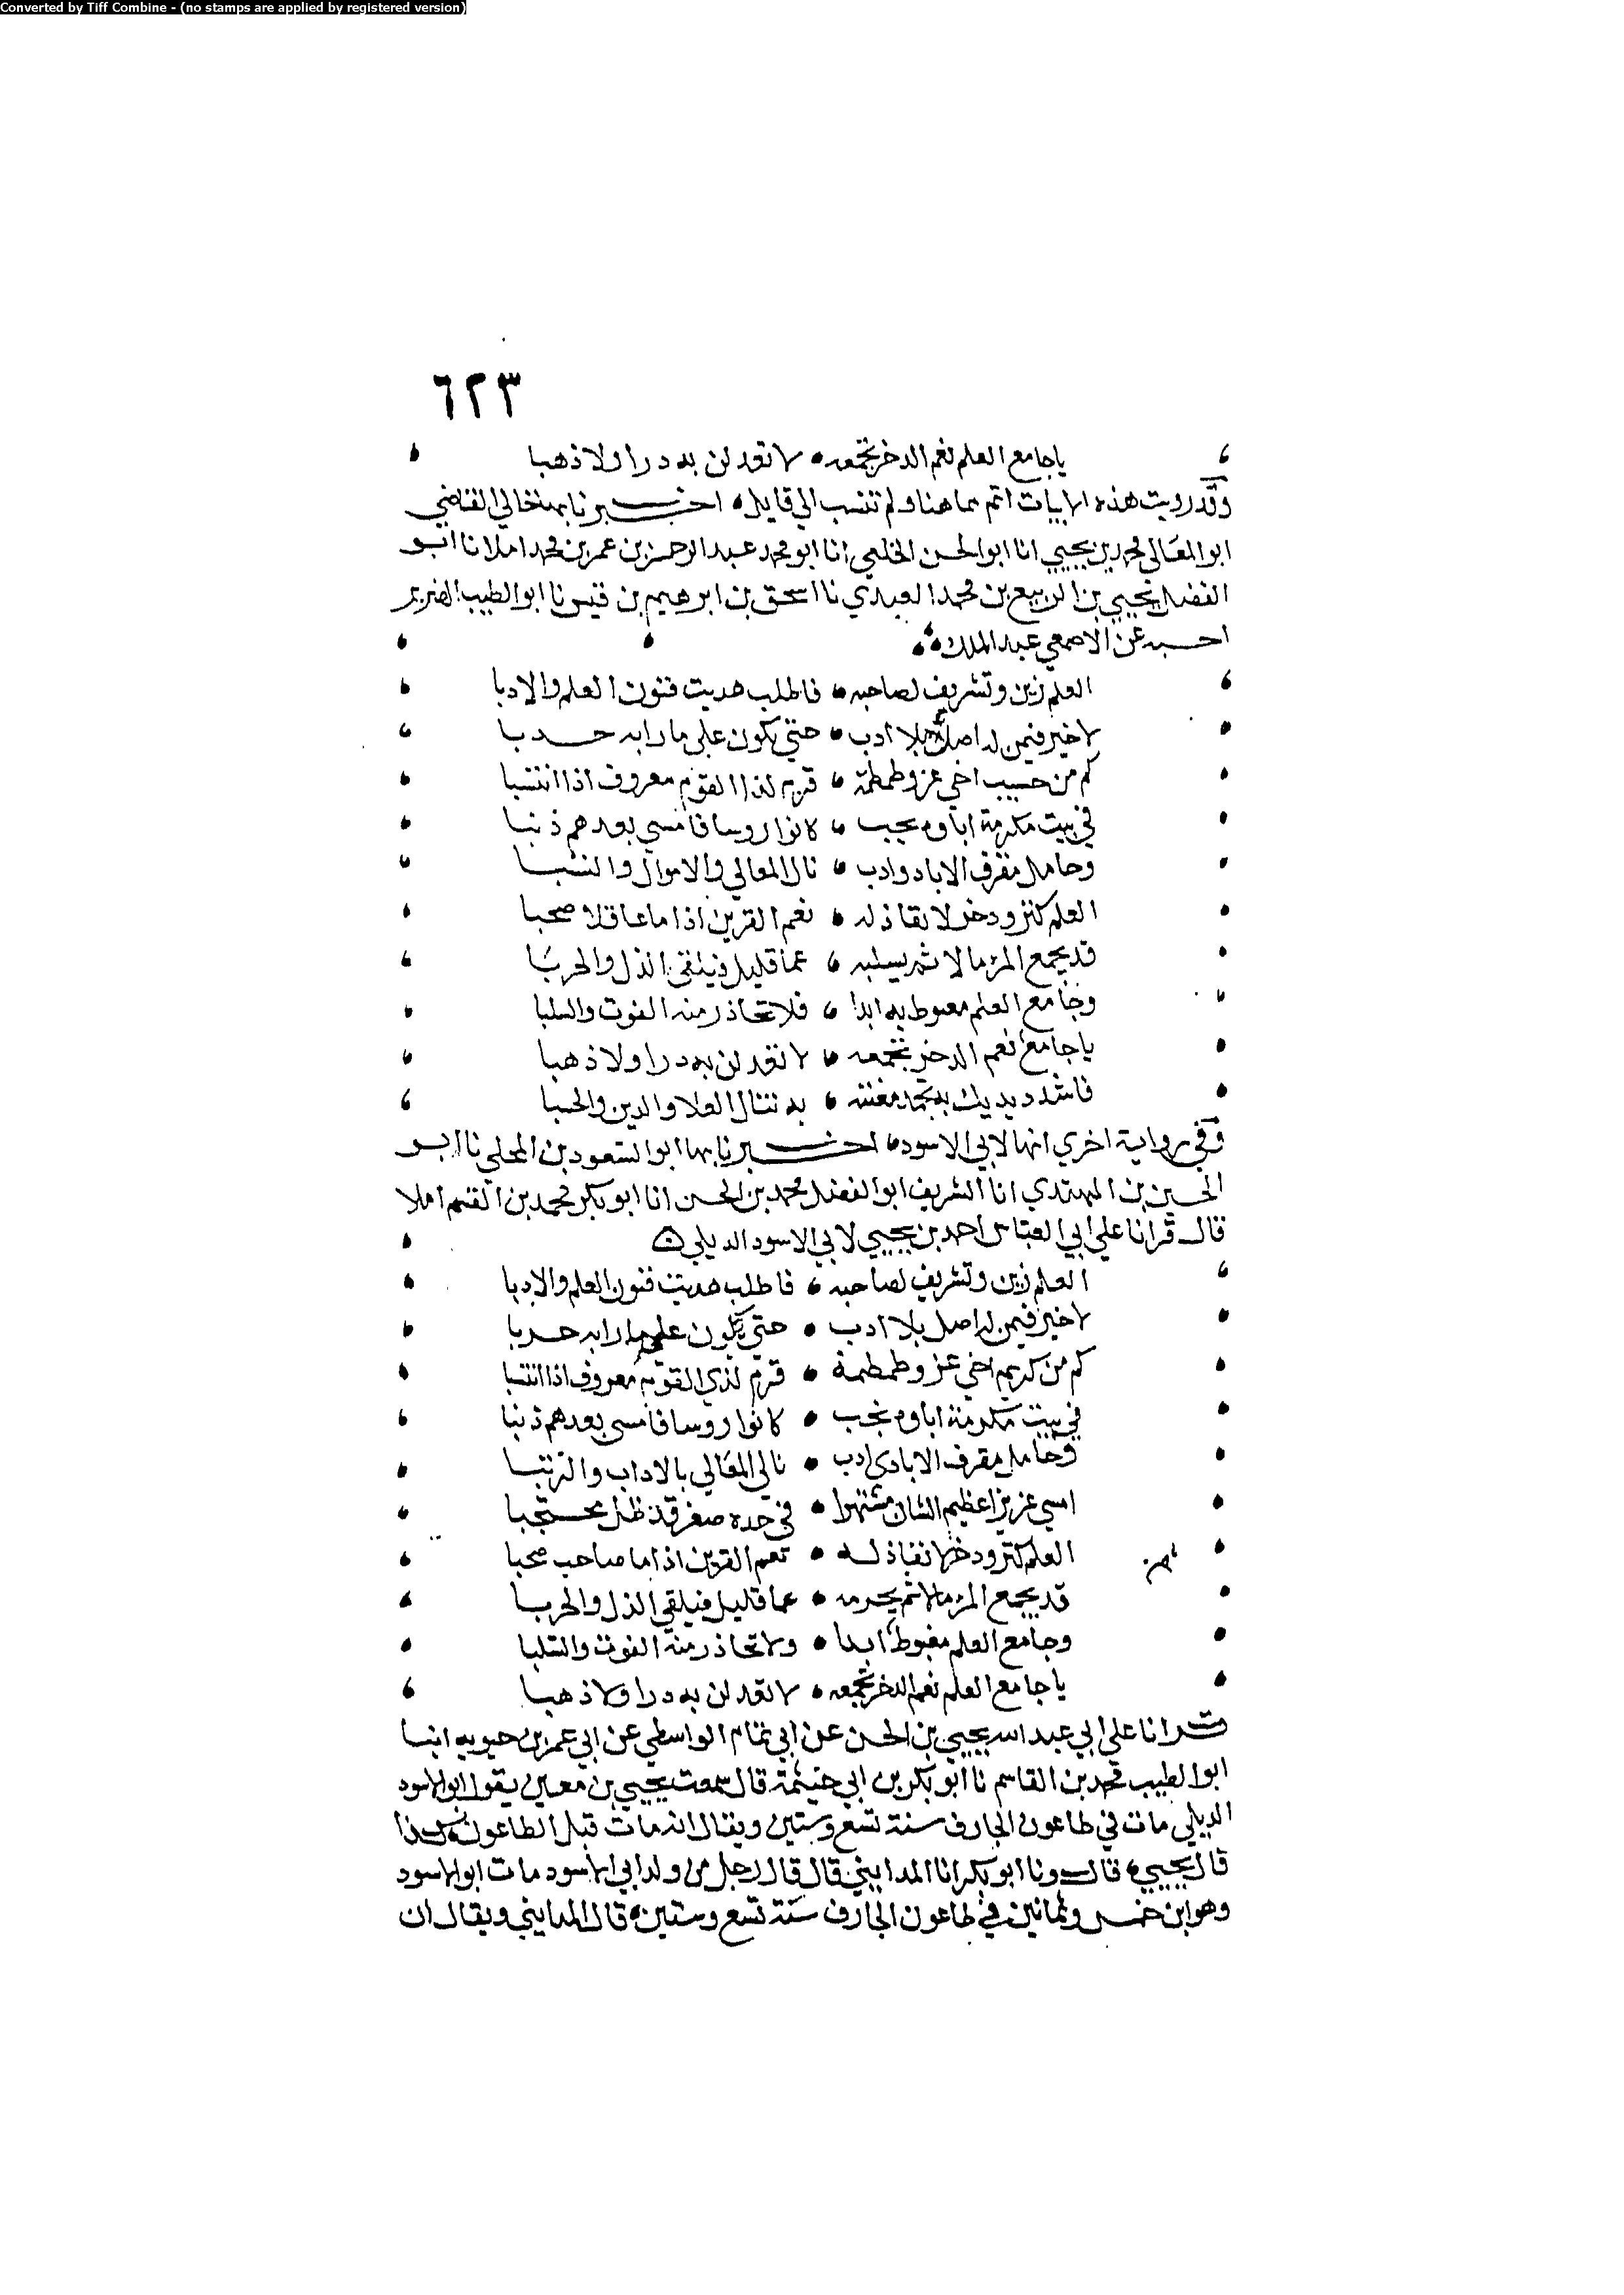 Converted by Tiff Combine - (no stamps are applied by registered version)
٦٢٣
ياجامع العلم نعم الدخر تجمعه لا تعدلن به درا ولا ذهبا
وقد رويت هذه الابيات اتم مما هنا ولم تنسب الي قايل اخبرنا بها خالي القاضي
ابو المعالي محمد بن يحيي انا ابو الحسن الخلعي انا ابو محمد عبد الرحمن بن عمر بن محمد املا نا ابو
الفضل يحيي بن الربيع بن محمد العبدي نا اسحق بن ابرهيم بن قيس نا ابو الطيب الضرير
احسبه عن الاصمعي عبد الملك
العلم زين وتشريف لصاحبه فاطلب هديت فنون العلم والادبا
لاخير فيمن له اصل بلا ادب حتي يكون علي ما رابه حدبا
كم من حسيب اخي عز وطمطمة قدم لذا القوم معروف اذا انتسبا
في بيت مكرمة اباوه نجب كانوا روسا فامسي بعدهم ذنبا
وخامل مقرف الاباء ذو ادب نال المعالي والاموال والنشبا
العلم كنز وذخر لا نفاذ له نعم القرين اذا ما عاقلا صحبا
قد يجمع المرء مالا ثم يسلبه عما قليل فيلقي الذل والحربا
وجامع العلم مغبوط به ابدا فلا تحاذر منه الفوت والسلبا
ياجامع نعم الدخر تجمعه لا تعدلن به درا ولا ذهبا
فاشدد يديك به تحمد مغبته به تنال العلا والدين والحسبا
وفي رواية اخري انها لابي الاسود اخبرنا بها ابو السعود بن المجلي نا ابو
الحسين بن المهتدي انا الشريف ابو الفضل محمد بن الحسن انا ابو بكر محمد بن القسم املا
قال قرانا علي ابي العباس احمد بن يحيي لابي الاسود الديلي
العلم زين وتشريف لصاحبه فاطلب هديت فنون العلم والادبا
لاخير فيمن له اصل بلا ادب حتي يكون علي ما رابه حدبا
كم من كريم اخي عز وطمطمة قدم لذي القوم معروف اذا انتسبا
في بيت مكرمة اباوه نجب كانوا روسا فامسي بعدهم ذنبا
وخامل مقرف الاباء ذي ادب نال المعالي بالاداب والرتبا
امسي عزيزا عظيم الشان مشتهرا في خده صعر قد ظل محتجبا
العلم كنز وذخر لا نفاذ له نعم القرين اذا ما صاحب صحبا
قد يجمع المرء مالا ثم يحرمه عما قليل فيلقي الذل والحربا
وجامع العلم مغبوط ابدا ولا تحاذر منه الفوت والسلبا
ياجامع العلم نعم الدخر تجمعه لا تعدلن به درا ولا ذهبا
قرانا علي ابي عبد الله يحيي بن الحسن عن ابي تمام الواسطي عن ابي عمر بن حيويه انبا
ابو الطيب محمد بن القاسم نا ابو بكر بن ابي خيثمة قال سمعت يحيي بن معين يقول ابو الاسود
الديلي مات في طاعون الجارف سنة تسع وستين ويقال انه مات قبل الطاعون
قال يحيي قال ونا ابو بكر انا المدايني قال قال رجل من ولد ابي الاسود مات ابو الاسود
وهو ابن خمس وثمانين في طاعون الجارف سنة تسع وستين قال المدايني ويقال ان